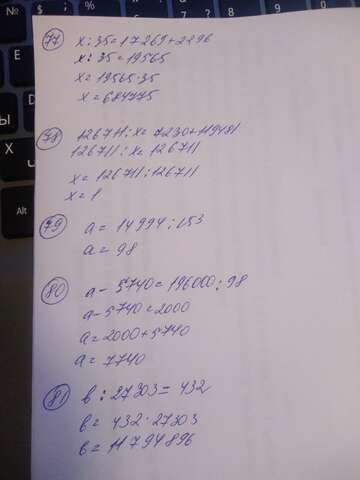 77 x : 35 = 17269 + 2296
x : 35 = 19565
x = 19565 · 35
x = 684775
78 126711 : x = 7230 + 119481
126711 : x = 126711
x = 126711 : 126711
x = 1
79 a = 14994 : 153
a = 98
80 a - 5740 = 196000 : 98
a - 5740 = 2000
a = 2000 + 5740
a = 7740
81 в : 27303 = 432
в = 432 · 27303
в = 11794896